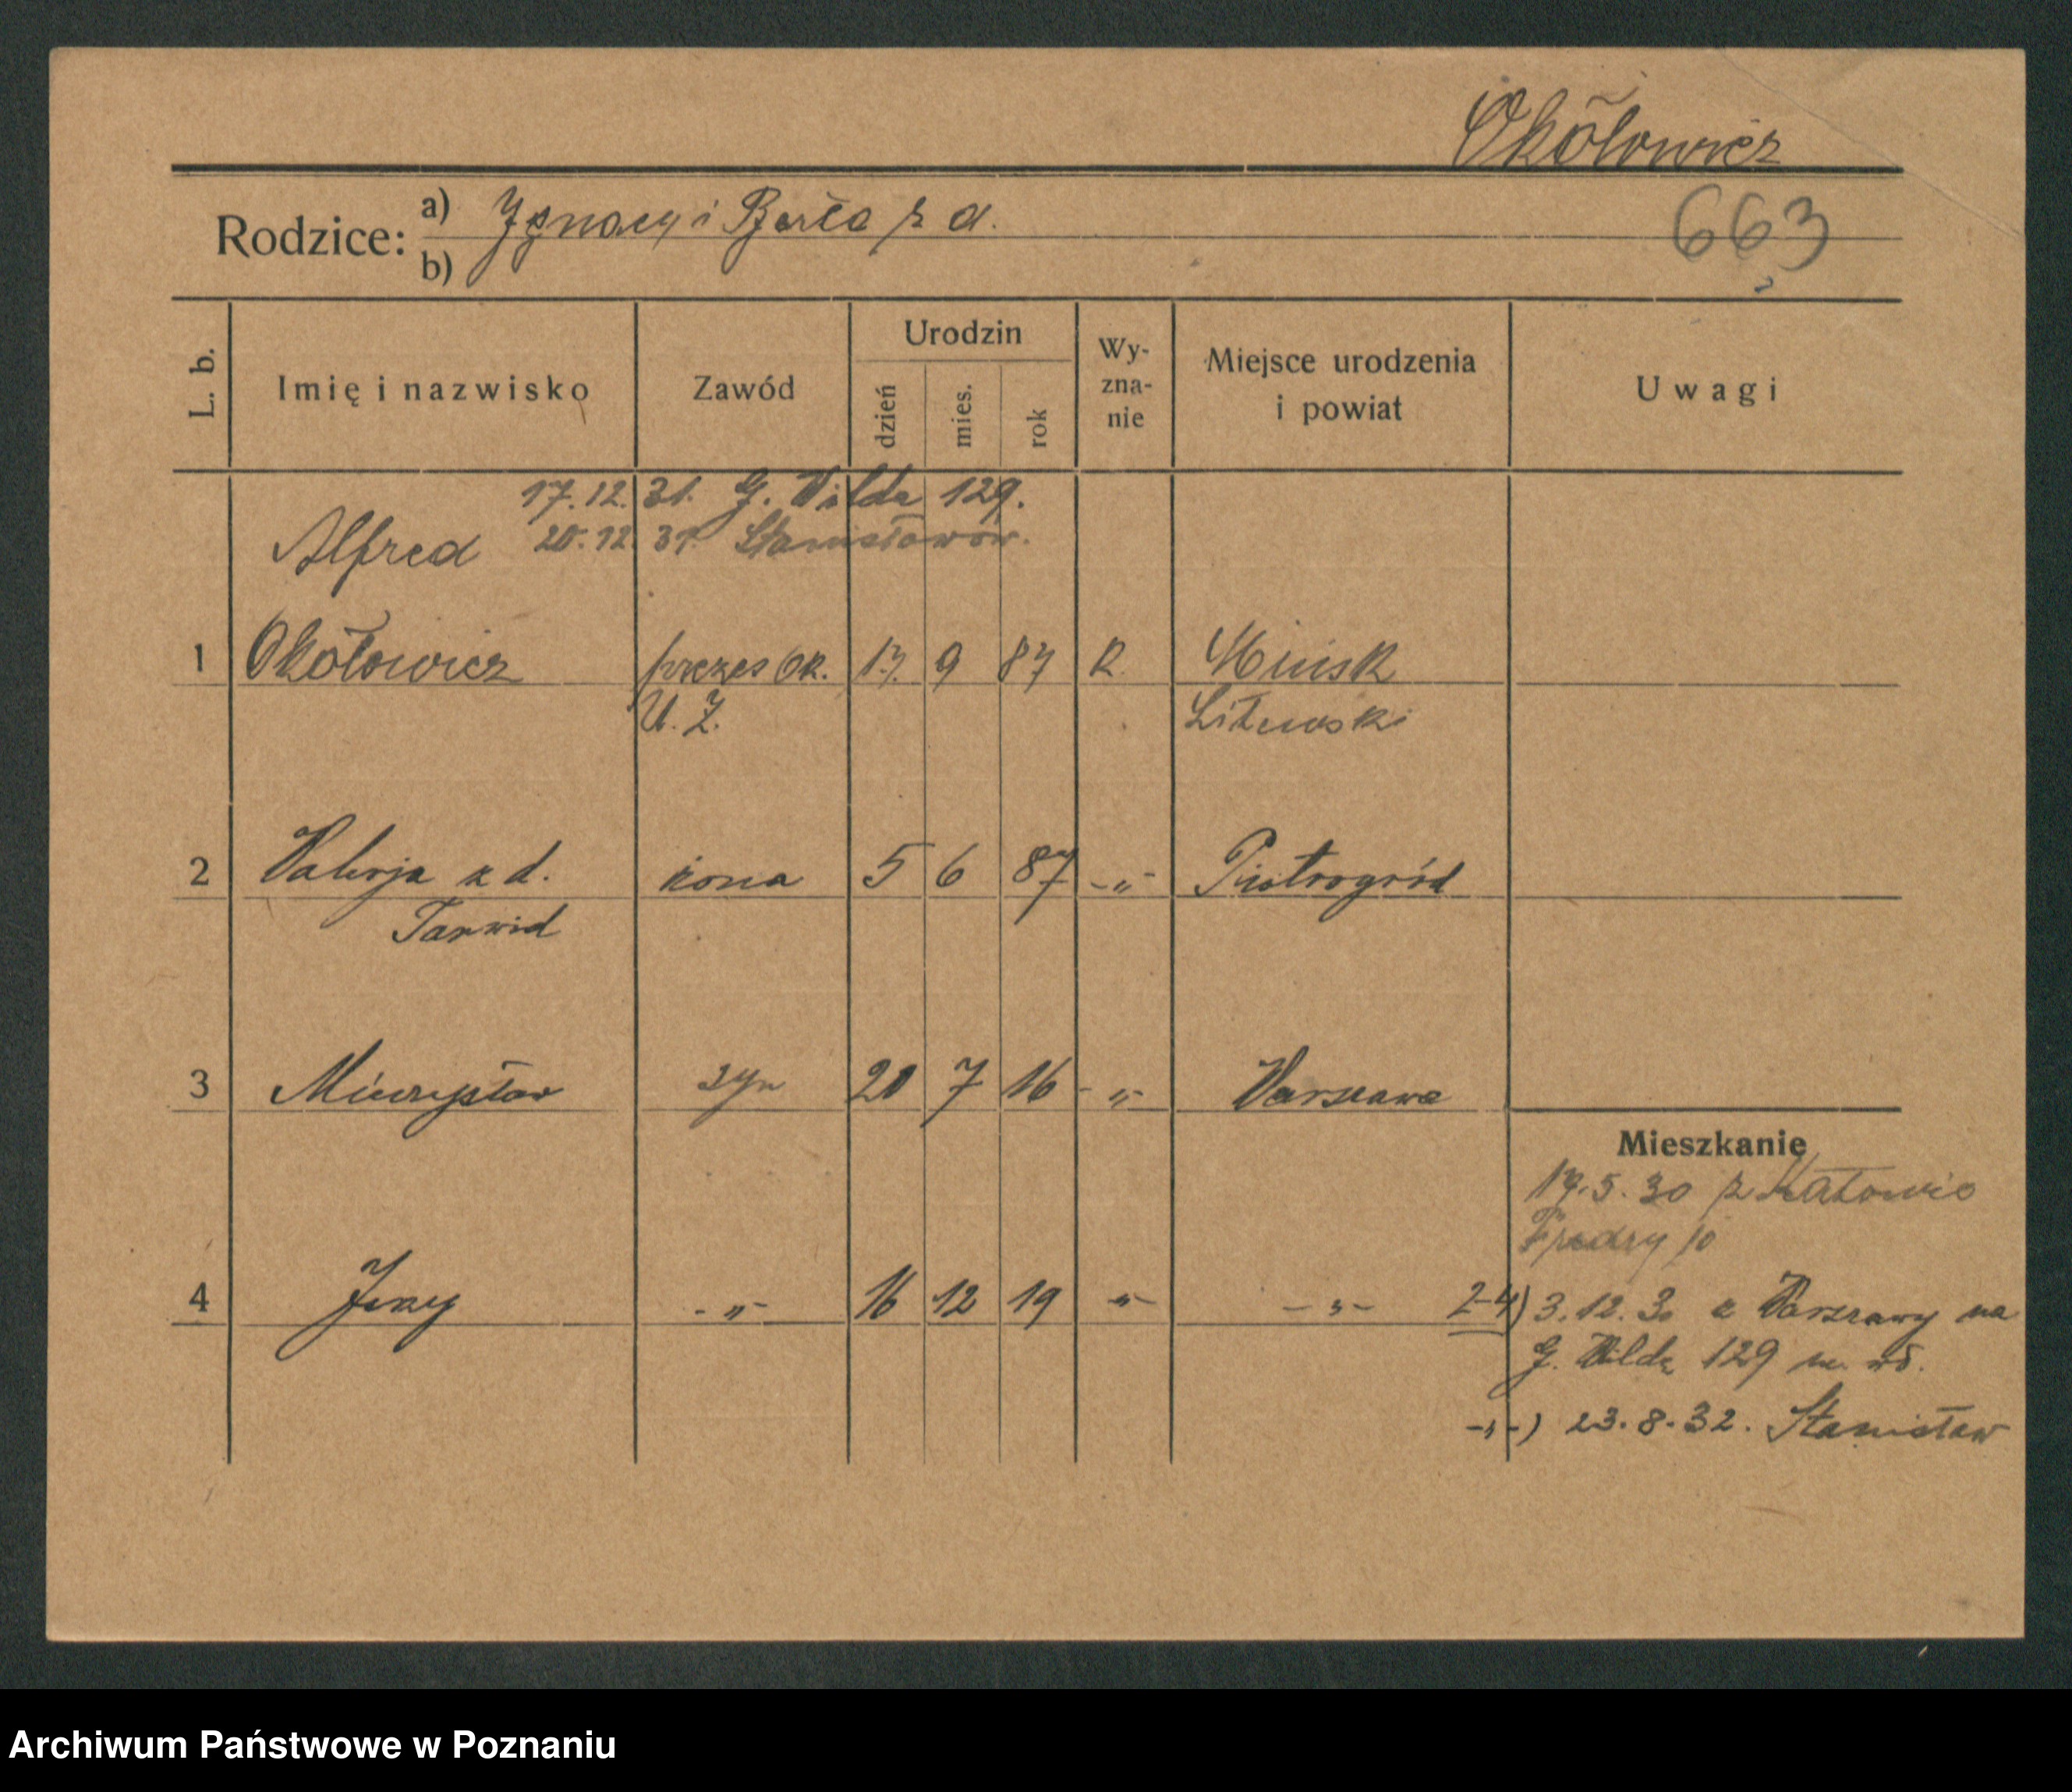 Okółowicz
Rodzice: a) Ignacy i Berta z d.
b)
663
L. b. Imię i nazwisko Zawód Urodzin dzień mies. rok Wyznanie Miejsce urodzenia i powiat Uwagi
17.12.31. G. Wilda 129.
Alfred 20.12.31. Stanisławów.
1 Okółowicz prezes Ok. 17. 9 87 R. Mińsk
U. Z. Litewski
2 Walerja z d. żona 5 6 87 -„- Piotrogród
Tarwid
3 Mieczysław syn 20 7 16 -„- Warszawa
Mieszkanie
17.5.30 z Katowic
Fredry 10
4 Jerzy -„- 16 12 19 -„- -„- 2-4) 3.12.30 z Warszawy na
G. Wilda 129 m. wł.
-„-) 23.8.32. Stanisław
Archiwum Państwowe w Poznaniu